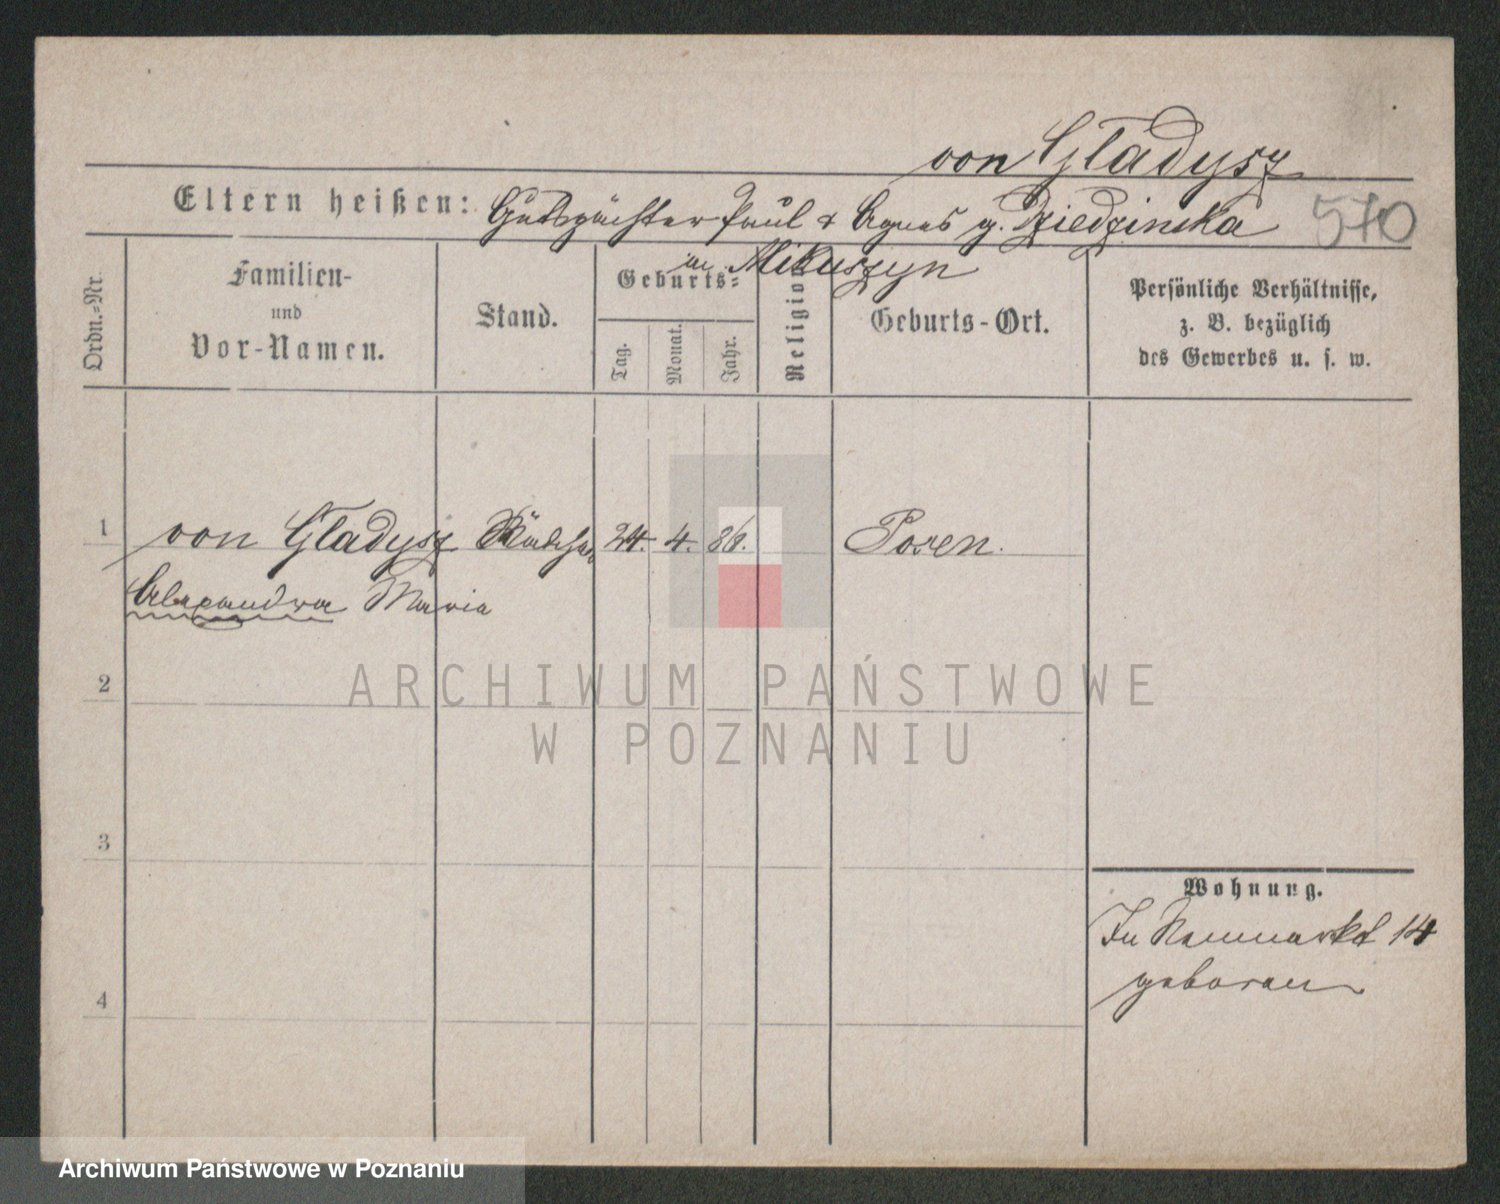 von Gładysz
Eltern heißen: Gutspächter Paul & Agnes g. Dziedzinska
570
in Mikuszyn
Ordn.-Nr.
Familien-
und
Vor-Namen.
Stand.
Geburts-
Tag.
Monat.
Jahr.
Religion
Geburts-Ort.
Persönliche Verhältnisse,
z. B. bezüglich
des Gewerbes u. s. w.
1 von Gładysz 24. 4. 86. Posen.
Alexandra Maria
2
ARCHIWUM PAŃSTWOWE
W POZNANIU
3
Wohnung.
In Neumarkt 14
geboren
4
Archiwum Państwowe w Poznaniu